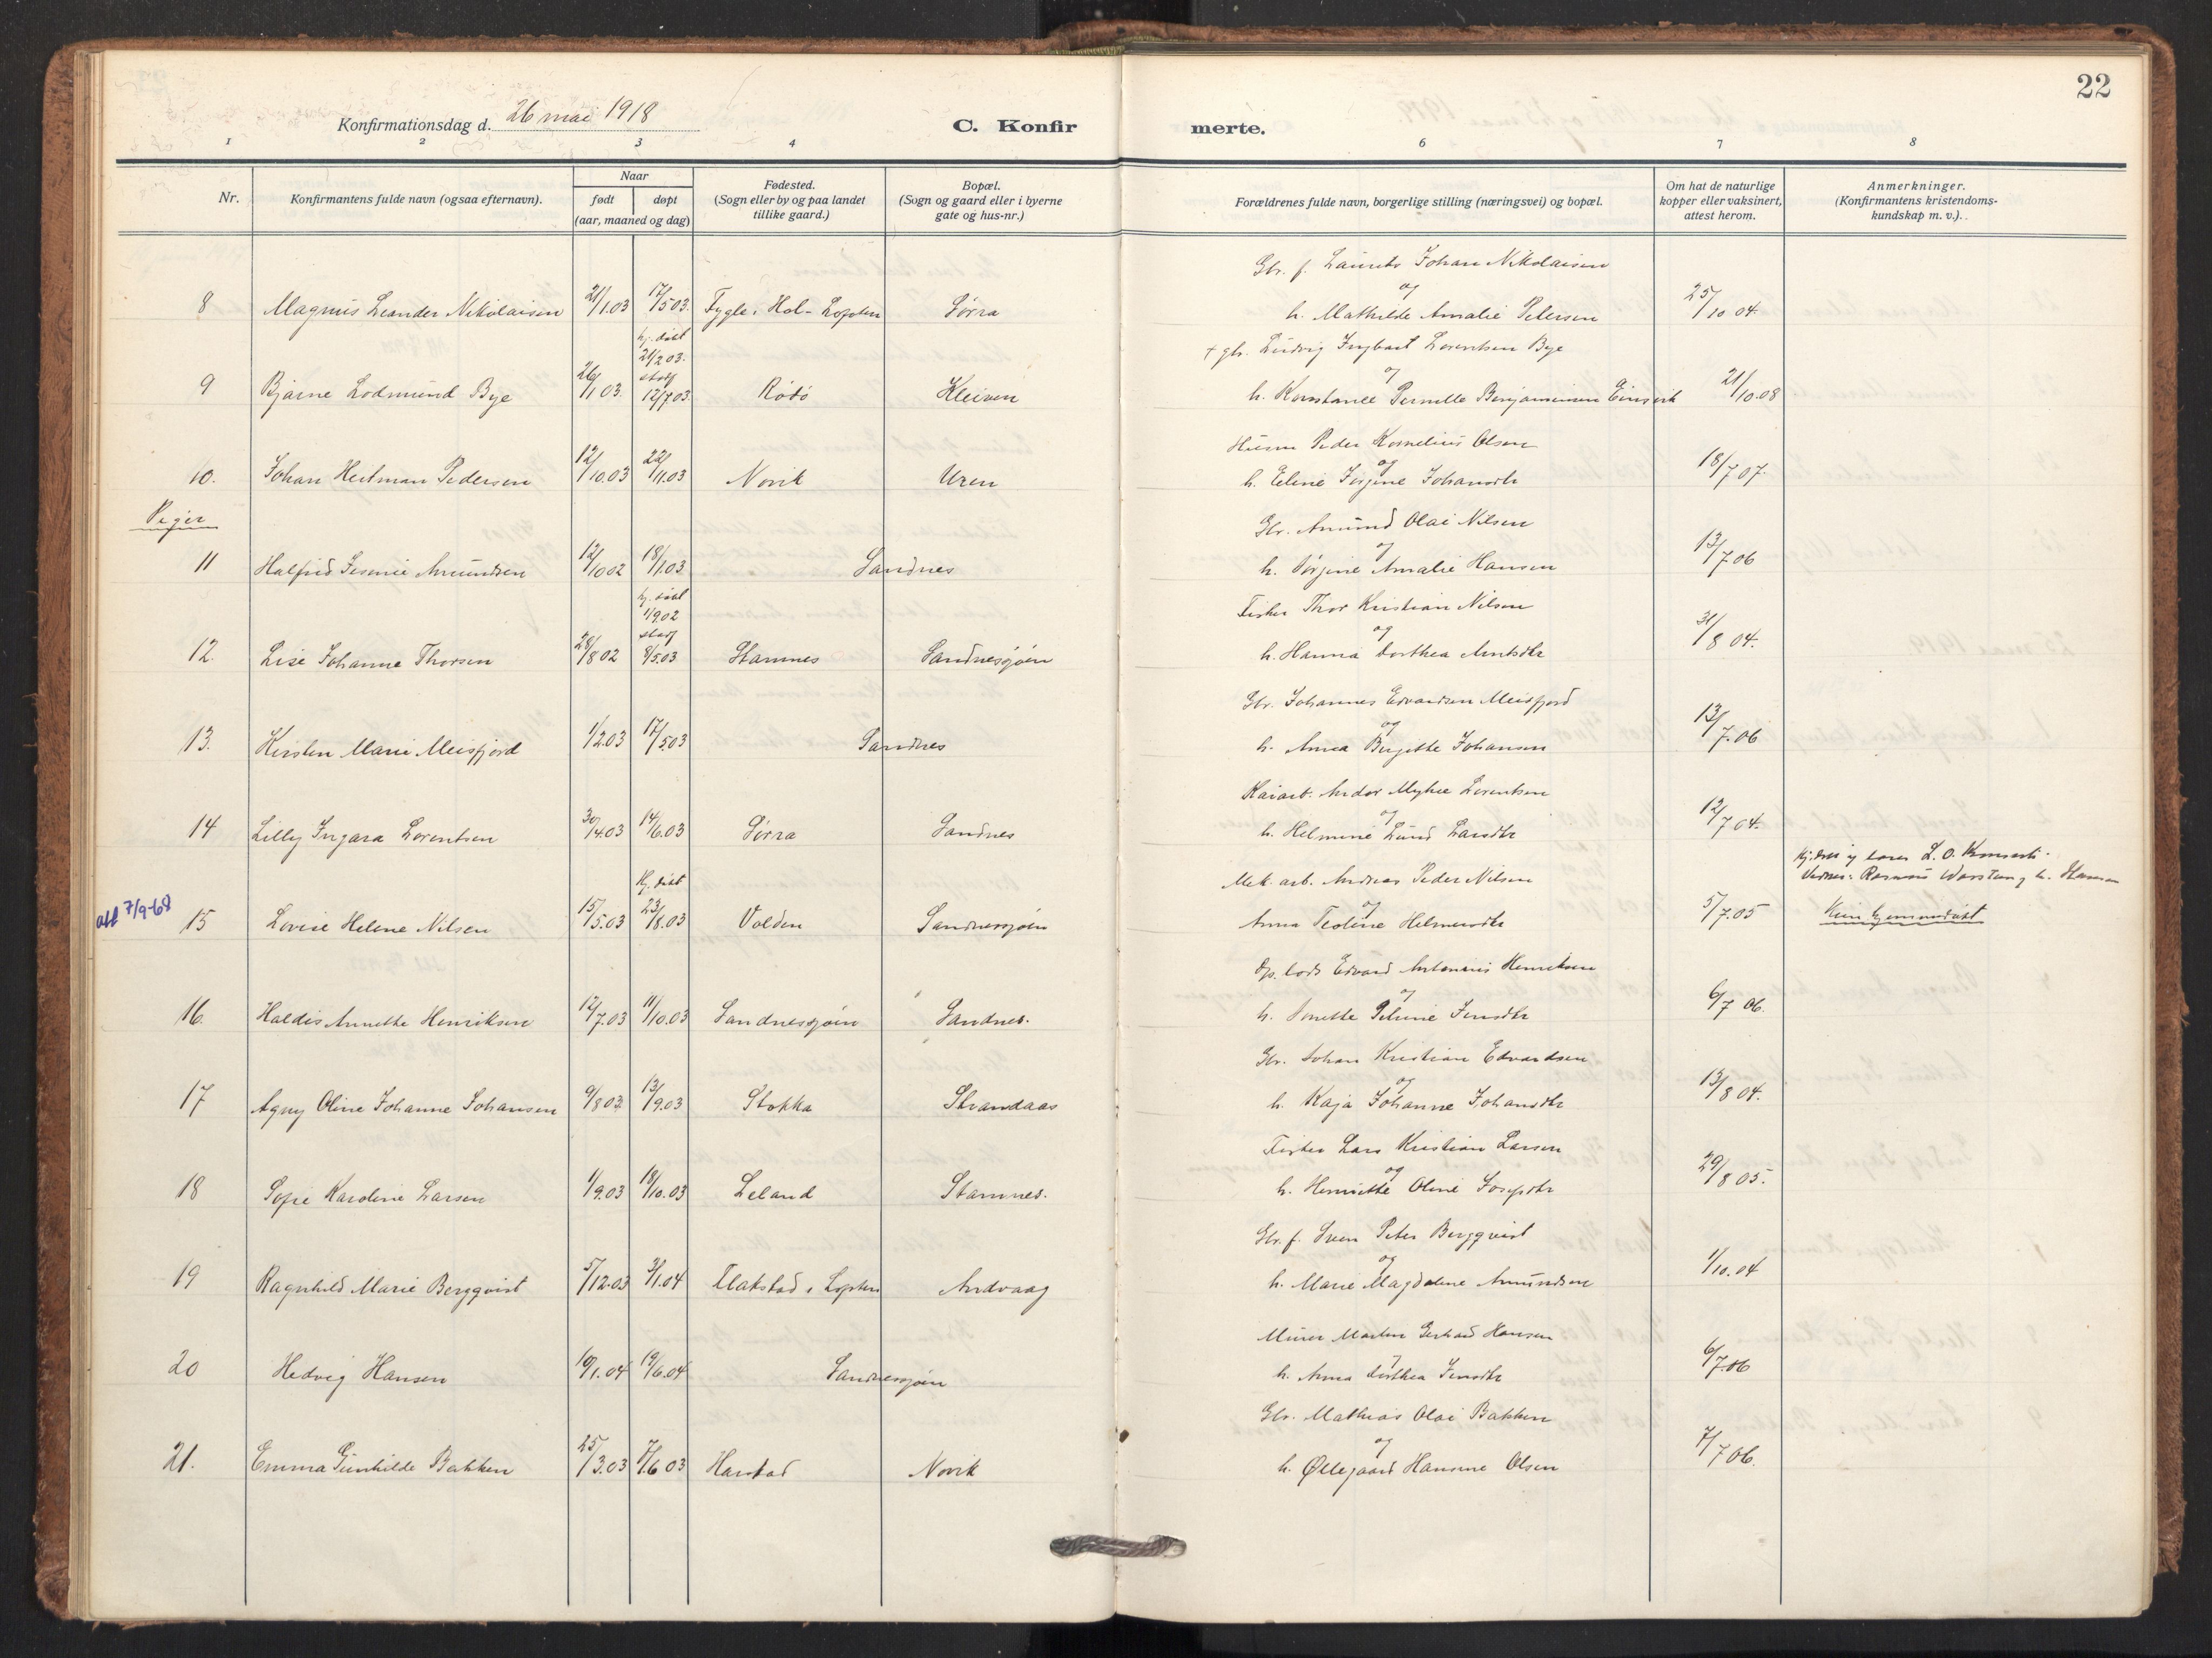 22
Konfirmationsdag d. 26 mai 1918
C. Konfirmerte.
1 2 3 4 6 7 8
Nr.
Konfirmantens fulde navn (ogsaa efternavn).
Naar
født døpt
(aar, maaned og dag)
Fødested.
(Sogn eller by og paa landet
tillike gaard.)
Bopæl.
(Sogn og gaard eller i byerne
gate og hus-nr.)
Forældrenes fulde navn, borgerlige stilling (næringsvei) og bopæl.
Om hat de naturlige
kopper eller vaksinert,
attest herom.
Anmerkninger.
(Konfirmantens kristendoms-
kundskap m. v.).
Gbr. f. Laurits Johan Nikolaisen
og
8 Magnus Leander Nikolaisen 21/1.03 17/5.03. Tygle i Hol - Lofoten Sørra h. Mathilde Amalie Petersen 25/10 04.
hj. døbt
21/2 03.
stadf
+ gbr. Ludvig Ingbart Lorentsen Bye
og
9 Bjarne Lodmund Bye 26/1 03. 12/7.03. Rødø Kleiven h. Konstance Pernelle Benjaminsen 21/10.08
Husm Peder Kornelius Olsen
og
10. Johan Heitman Pedersen 12/10.03 22/11.03 Novik Uren h. Eline Jørgine Johansdtr 18/7 07.
Piger
Gbr. Amund Olai Nilsen
og
11 Halfrid Jesmie Amundsen 12/10 02 18/1.03 Sandnes h. Jørgine Amalie Hansen 13/7 06
hj. døbt
1/9 02
stadf
Fisker Thor Kristian Nilsen
og
12. Lise Johanne Thorsen 28/8 02 8/5.03 Stamnes Sandnessjøen h. Hanna Dorthea Arntsdtr 31/8 04.
Gbr. Johannes Edvardsen Meisfjord
og
13. Kirsten Marie Meisfjord 1/2.03 17/5.03 Sandnes h. Anna Bergitte Johansen 13/7.06
Kaiarb. Andor Myhre Lorentsen
og
14 Lilly Ingara Lorentsen 30/4.03 14/6.03 Sørra Sandnes h. Helmine Lund Larsdtr 12/7 04.
Hj. døbt
Mek. arb. Andreas Peder Nilsen
og
att 7/9-68
15 Lovise Helene Nilsen 15/5.03 23/8.03 Volden Sandnessjøen Anna Teoline Helmersdtr 5/7.05
Kun hjemmedøbt
Edvard Antonius Henriksen
og
16. Haldis Annette Henriksen 12/7.03 11/10.03 Sandnessjøen Sandnes. h. Jonette Petrine Jensdtr 6/7 06.
Gbr. Johan Kristian Edvardsen
og
17 Agny Oline Johanne Johansen 9/8 03 13/9.03 Stokka Strandaas h. Kaja Johanne Johansdtr 13/8 04.
Fisker Lars Kristian Larsen
og
18 Sofie Karoline Larsen 1/9.03 18/10.03 Leland Stamnes. h. Henriette Oline Josefsdtr 29/8 05.
Gbr. f. Sven Peter Bergqvist
og
19 Ragnhild Marie Bergqvist 5/12.03 3/1.04 Flakstad i Lofoten Andvaag h. Marie Magdalene Amundsen 1/10.04
Murer Martin Gerhard Hansen
og
20 Hedvig Hansen 10/1.04 19/6.04 Sandnessjøen h. Anna Dorthea Jensdtr 6/7.06
Gbr. Mathias Olai Bakken
og
21. Emma Gunhilde Bakken 25/3.03 7/6 03 Harstad Novik h. Øllegaard Hansine Olsen 7/7 06.